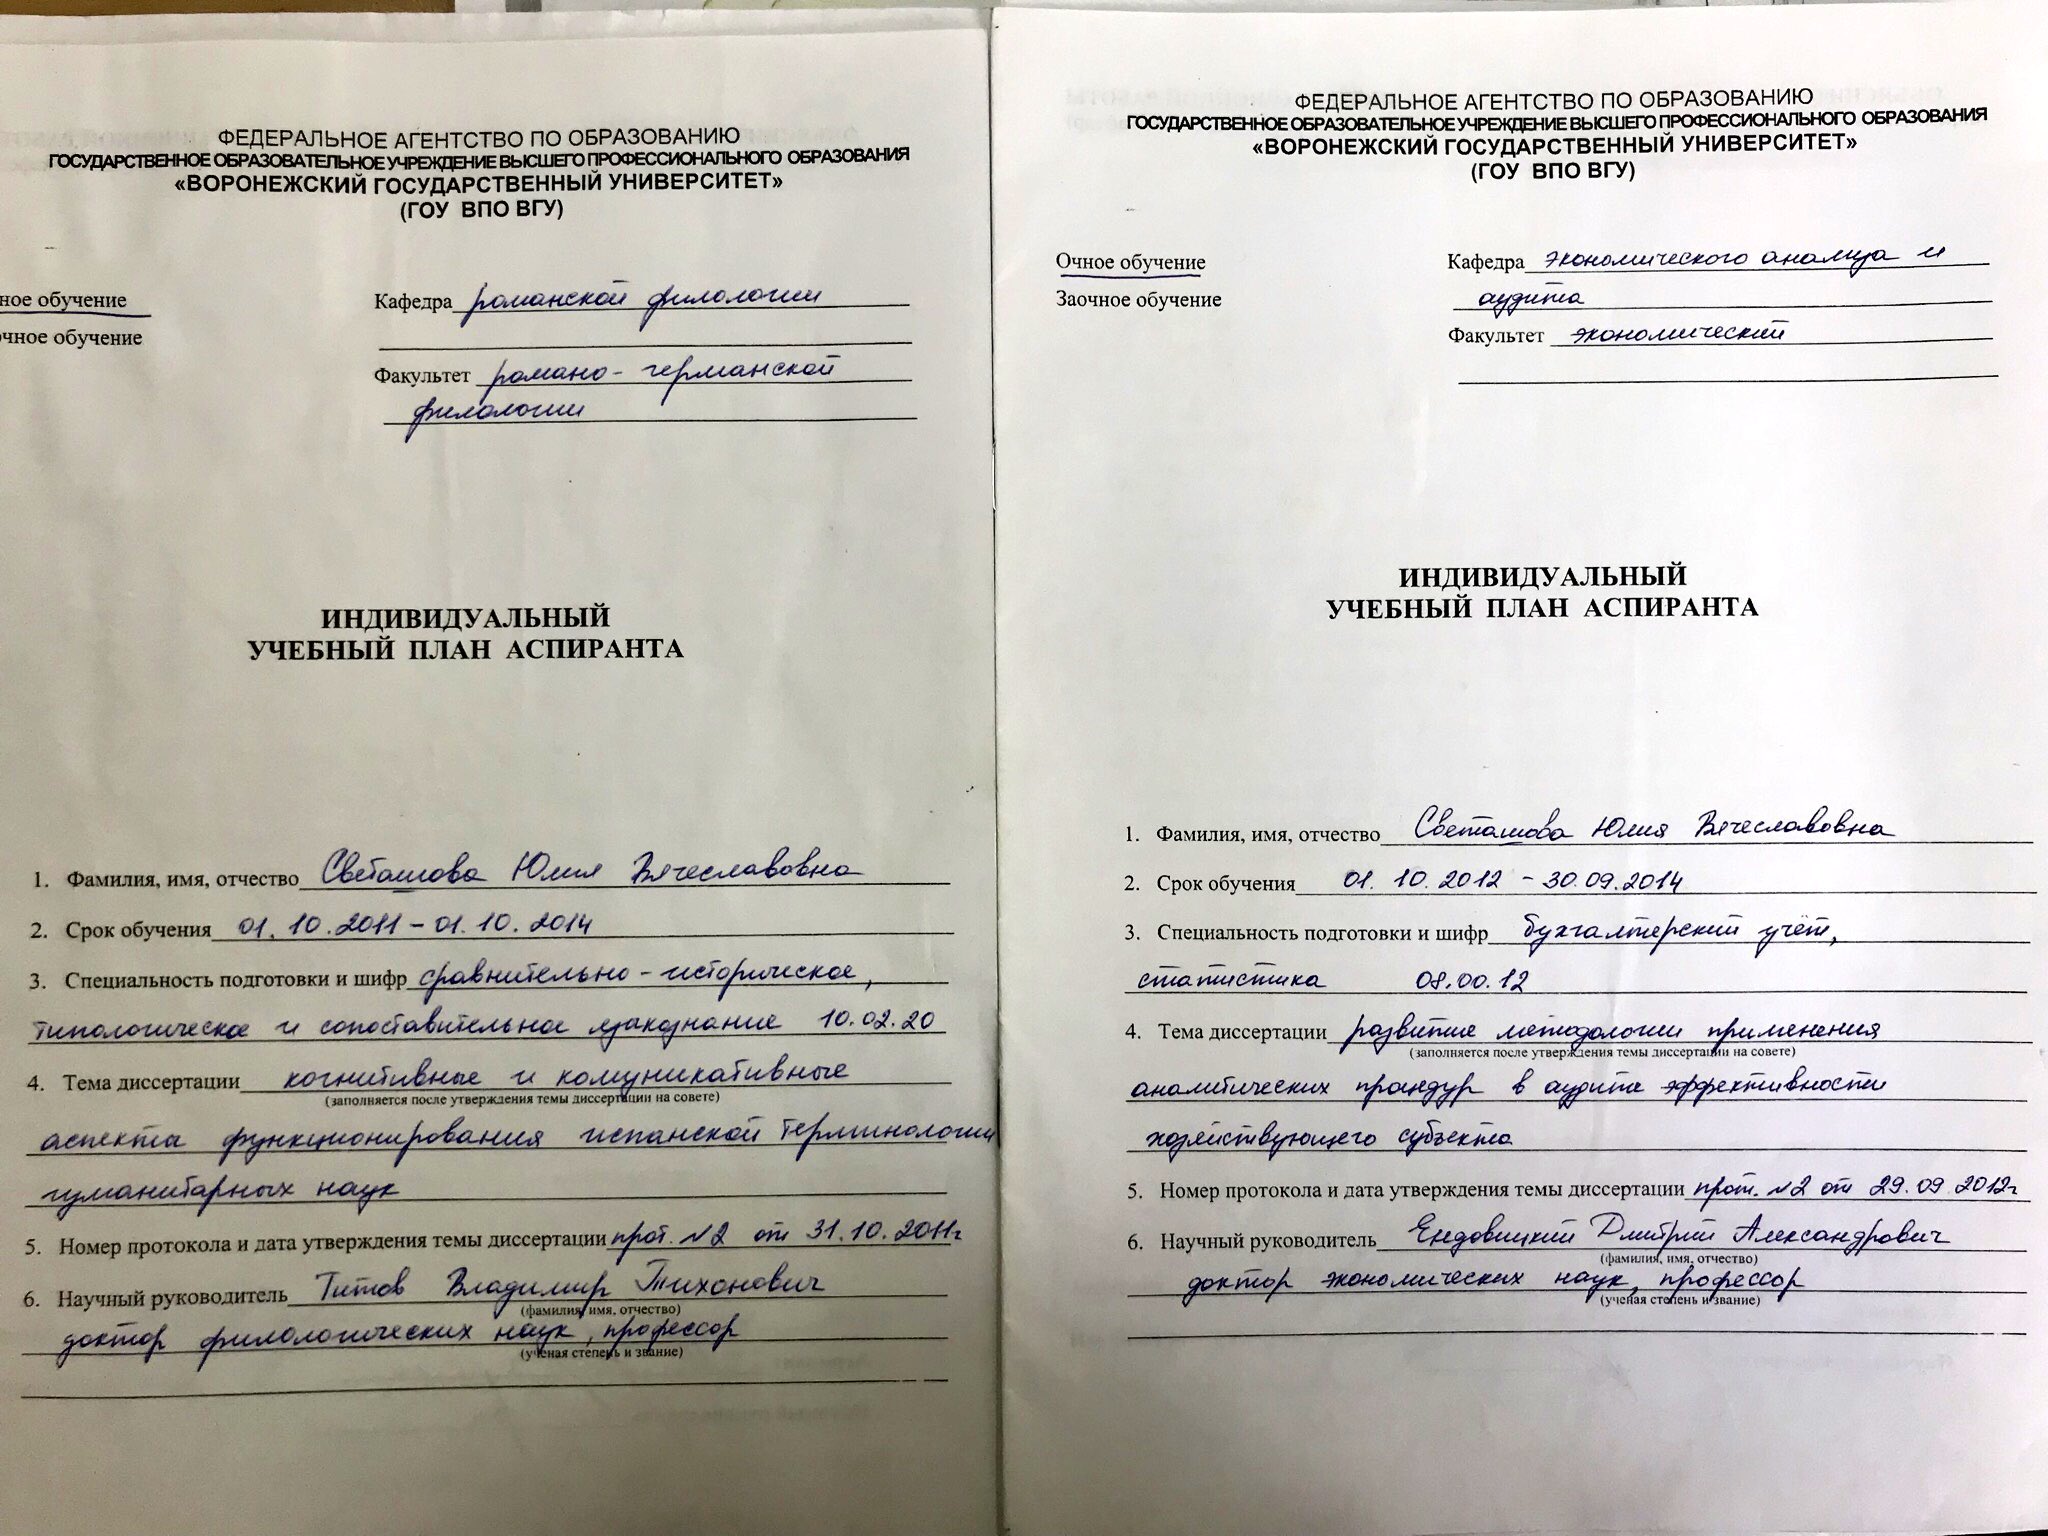 ФЕДЕРАЛЬНОЕ АГЕНТСТВО ПО ОБРАЗОВАНИЮ
ГОСУДАРСТВЕННОЕ ОБРАЗОВАТЕЛЬНОЕ УЧРЕЖДЕНИЕ ВЫСШЕГО ПРОФЕССИОНАЛЬНОГО ОБРАЗОВАНИЯ
«ВОРОНЕЖСКИЙ ГОСУДАРСТВЕННЫЙ УНИВЕРСИТЕТ»
(ГОУ ВПО ВГУ)
ное обучение
Кафедра романской филологии
чное обучение
Факультет романо-германской
филологии
ИНДИВИДУАЛЬНЫЙ
УЧЕБНЫЙ ПЛАН АСПИРАНТА
1. Фамилия, имя, отчество Светашова Юлия Вячеславовна
2. Срок обучения 01.10.2011 – 01.10.2014
3. Специальность подготовки и шифр сравнительно-историческое,
типологическое и сопоставительное языкознание 10.02.20
4. Тема диссертации когнитивные и комуникативные
(заполняется после утверждения темы диссертации на совете)
аспекты функционирования испанской терминологии
гуманитарных наук
5. Номер протокола и дата утверждения темы диссертации прот. №2 от 31.10.2011г
6. Научный руководитель Титов Владимир Тихонович
(фамилия, имя, отчество)
доктор филологических наук, профессор
(ученая степень и звание)
ФЕДЕРАЛЬНОЕ АГЕНТСТВО ПО ОБРАЗОВАНИЮ
ГОСУДАРСТВЕННОЕ ОБРАЗОВАТЕЛЬНОЕ УЧРЕЖДЕНИЕ ВЫСШЕГО ПРОФЕССИОНАЛЬНОГО ОБРАЗОВАНИЯ
«ВОРОНЕЖСКИЙ ГОСУДАРСТВЕННЫЙ УНИВЕРСИТЕТ»
(ГОУ ВПО ВГУ)
Очное обучение
Кафедра экономического анализа и
Заочное обучение
аудита
Факультет экономический
ИНДИВИДУАЛЬНЫЙ
УЧЕБНЫЙ ПЛАН АСПИРАНТА
1. Фамилия, имя, отчество Светашова Юлия Вячеславовна
2. Срок обучения 01.10.2012 – 30.09.2014
3. Специальность подготовки и шифр бухгалтерский учёт,
статистика 08.00.12
4. Тема диссертации развитие методологии применения
(заполняется после утверждения темы диссертации на совете)
аналитических процедур в аудите эффективности
хозяйствующего субъекта
5. Номер протокола и дата утверждения темы диссертации прот. №2 от 29.09.2012г
6. Научный руководитель Ендовицкий Дмитрий Александрович
(фамилия, имя, отчество)
доктор экономических наук, профессор
(ученая степень и звание)